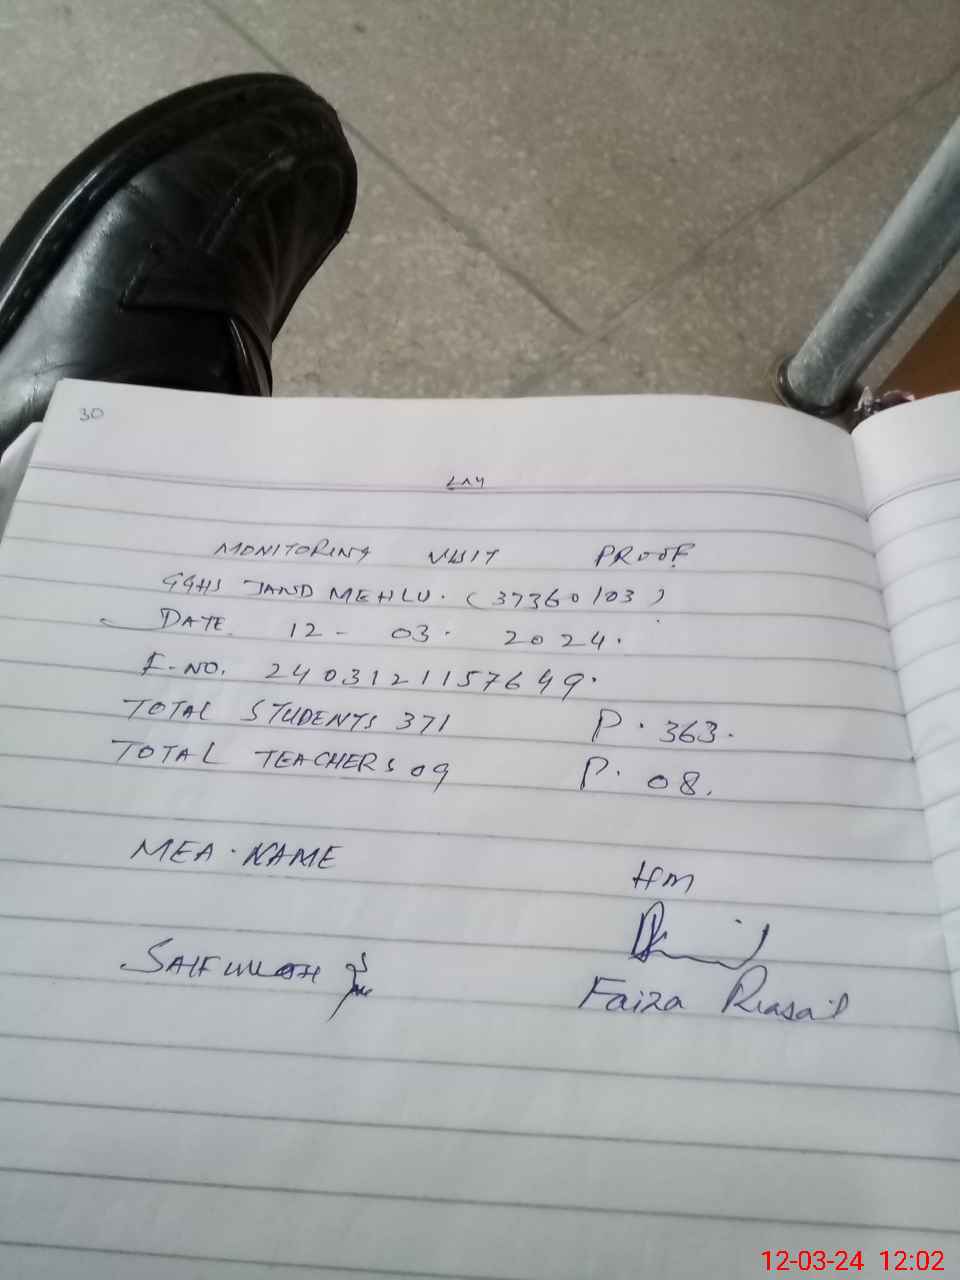 30
MONITORING VISIT PROOF
GGHS JAND MEHLU. (37360103)
DATE 12 - 03. 2024.
F-NO. 2403121157649.
TOTAL STUDENTS 371 P. 363.
TOTAL TEACHERS 09 P. 08.
MEA. NAME
HM
SAIFULLAH
Faiza
12-03-24 12:02